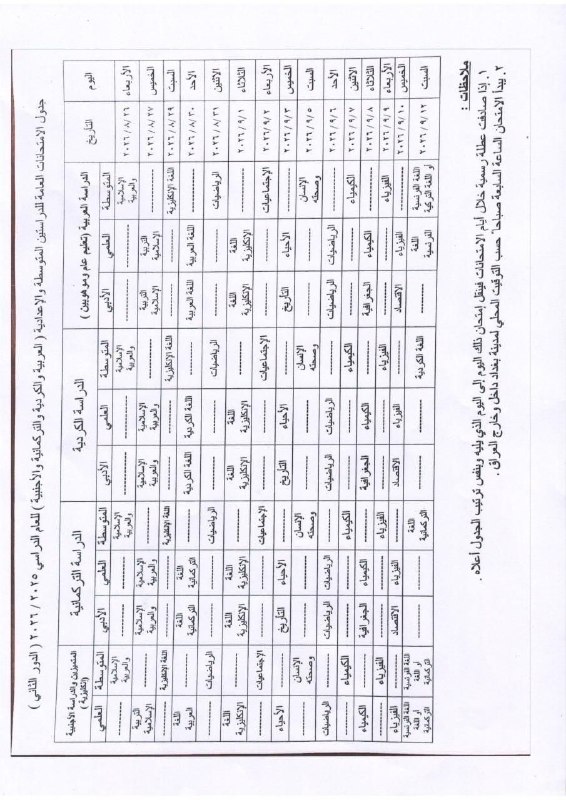 جدول الامتحانات العامة للدراستين المتوسطة والإعدادية ( العربية والكردية والتركمانية والأجنبية ) للعام الدراسي ٢٠٢٥ / ٢٠٢٦ ( الدور الثاني )
اليوم التاريخ الدراسة العربية (تعليم عام وموهوبين) الدراسة الكردية الدراسة التركمانية المتميزين والدراسة الأجنبية (انكليزية)
المتوسطة العلمي الأدبي المتوسطة العلمي الأدبي المتوسطة العلمي الأدبي المتوسطة العلمي
الأربعاء ٢٠٢٦ / ٨ / ٢٦ الإسلامية والعربية -------- -------- الإسلامية والعربية -------- -------- الإسلامية والعربية -------- -------- الإسلامية والعربية --------
الخميس ٢٠٢٦ / ٨ / ٢٧ -------- التربية الإسلامية التربية الإسلامية -------- الإسلامية والعربية الإسلامية والعربية -------- الإسلامية والعربية الإسلامية والعربية -------- التربية الإسلامية
السبت ٢٠٢٦ / ٨ / ٢٩ اللغة الإنكليزية -------- -------- اللغة الإنكليزية -------- -------- اللغة الإنكليزية -------- -------- اللغة الإنكليزية --------
الأحد ٢٠٢٦ / ٨ / ٣٠ -------- اللغة العربية اللغة العربية -------- اللغة الكردية اللغة الكردية -------- اللغة التركمانية اللغة التركمانية -------- اللغة العربية
الاثنين ٢٠٢٦ / ٨ / ٣١ الرياضيات -------- -------- الرياضيات -------- -------- الرياضيات -------- -------- الرياضيات --------
الثلاثاء ٢٠٢٦ / ٩ / ١ -------- اللغة الإنكليزية اللغة الإنكليزية -------- اللغة الإنكليزية اللغة الإنكليزية -------- اللغة الإنكليزية اللغة الإنكليزية -------- اللغة الإنكليزية
الأربعاء ٢٠٢٦ / ٩ / ٢ الإجتماعيات -------- -------- الإجتماعيات -------- -------- الإجتماعيات -------- -------- الإجتماعيات --------
الخميس ٢٠٢٦ / ٩ / ٣ -------- الأحياء التأريخ -------- الأحياء التأريخ -------- الأحياء التأريخ -------- الأحياء
السبت ٢٠٢٦ / ٩ / ٥ الإنسان وصحته -------- -------- الإنسان وصحته -------- -------- الإنسان وصحته -------- -------- الإنسان وصحته --------
الأحد ٢٠٢٦ / ٩ / ٦ -------- الرياضيات الرياضيات -------- الرياضيات الرياضيات -------- الرياضيات الرياضيات -------- الرياضيات
الاثنين ٢٠٢٦ / ٩ / ٧ الكيمياء -------- -------- الكيمياء -------- -------- الكيمياء -------- -------- الكيمياء --------
الثلاثاء ٢٠٢٦ / ٩ / ٨ -------- الكيمياء الجغرافية -------- الكيمياء الجغرافية -------- الكيمياء الجغرافية -------- الكيمياء
الأربعاء ٢٠٢٦ / ٩ / ٩ الفيزياء -------- -------- الفيزياء -------- -------- الفيزياء -------- -------- الفيزياء --------
الخميس ٢٠٢٦ / ٩ / ١٠ -------- الفيزياء الاقتصاد -------- الفيزياء الاقتصاد -------- الفيزياء الاقتصاد -------- الفيزياء
السبت ٢٠٢٦ / ٩ / ١٢ اللغة الفرنسية أو اللغة التركية اللغة الفرنسية -------- اللغة الكردية -------- -------- اللغة التركمانية -------- -------- اللغة الفرنسية أو اللغة التركمانية اللغة الفرنسية أو اللغة التركمانية
ملاحظات :
١. إذا صادفت عطلة رسمية خلال أيام الامتحانات فينقل إمتحان ذلك اليوم إلى اليوم الذي يليه وبنفس ترتيب الجدول أعلاه .
٢. يبدأ الامتحان الساعة السابعة صباحاً حسب التوقيت المحلي لمدينة بغداد داخل وخارج العراق .